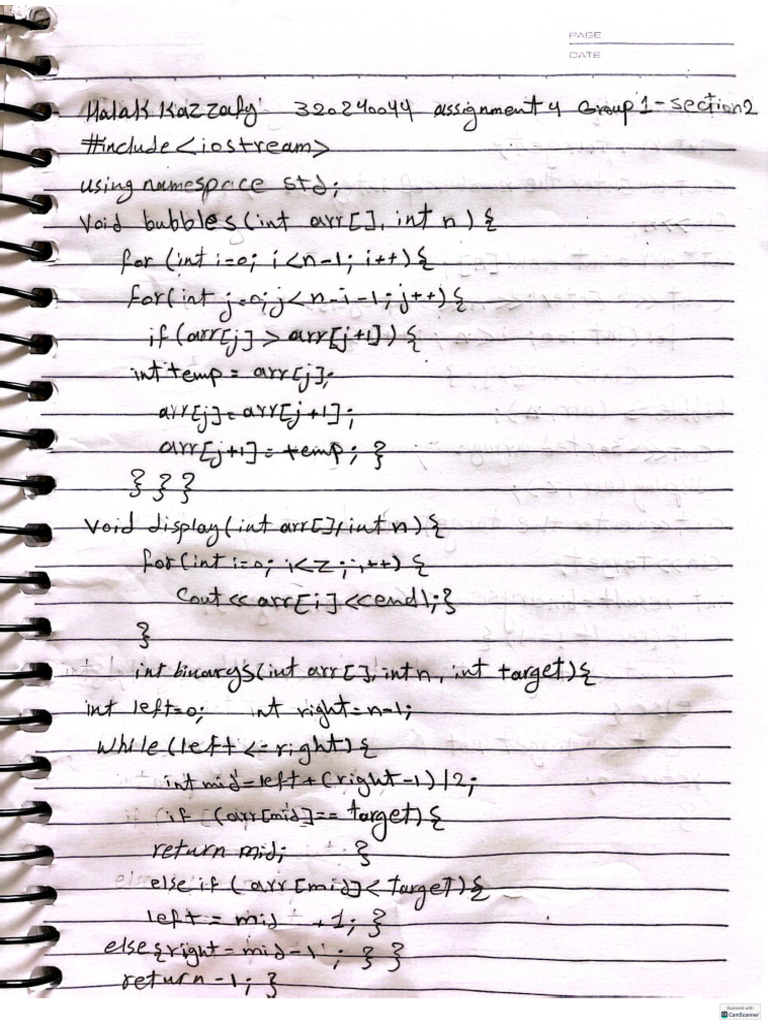 PAGE
DATE
Malak Kazzafy 320240044 assignment 4 Group 1-section2
#include<iostream>
using namespace std;
Void bubbles(int arr[], int n){
for (int i=0; i<n-1; i++){
for(int j=0;j<n-i-1;j++){
if(arr[j]>arr[j+1]){
int temp = arr[j];
arr[j]=arr[j+1];
arr[j+1]=temp; }
} } }
Void display(int arr[],int n){
for(int i=0; i<z;i++) {
Cout<<arr[i]<<endl;}
}
int binarys(int arr[],int n, int target){
int left=0; int right=n-1;
while(left<=right){
int mid=left+(right-1)/2;
if (arr[mid]==target){
return mid; }
else if (arr[mid]<target){
left = mid +1; }
else{right=mid-1; } }
return -1; }
Scanned with
CamScanner